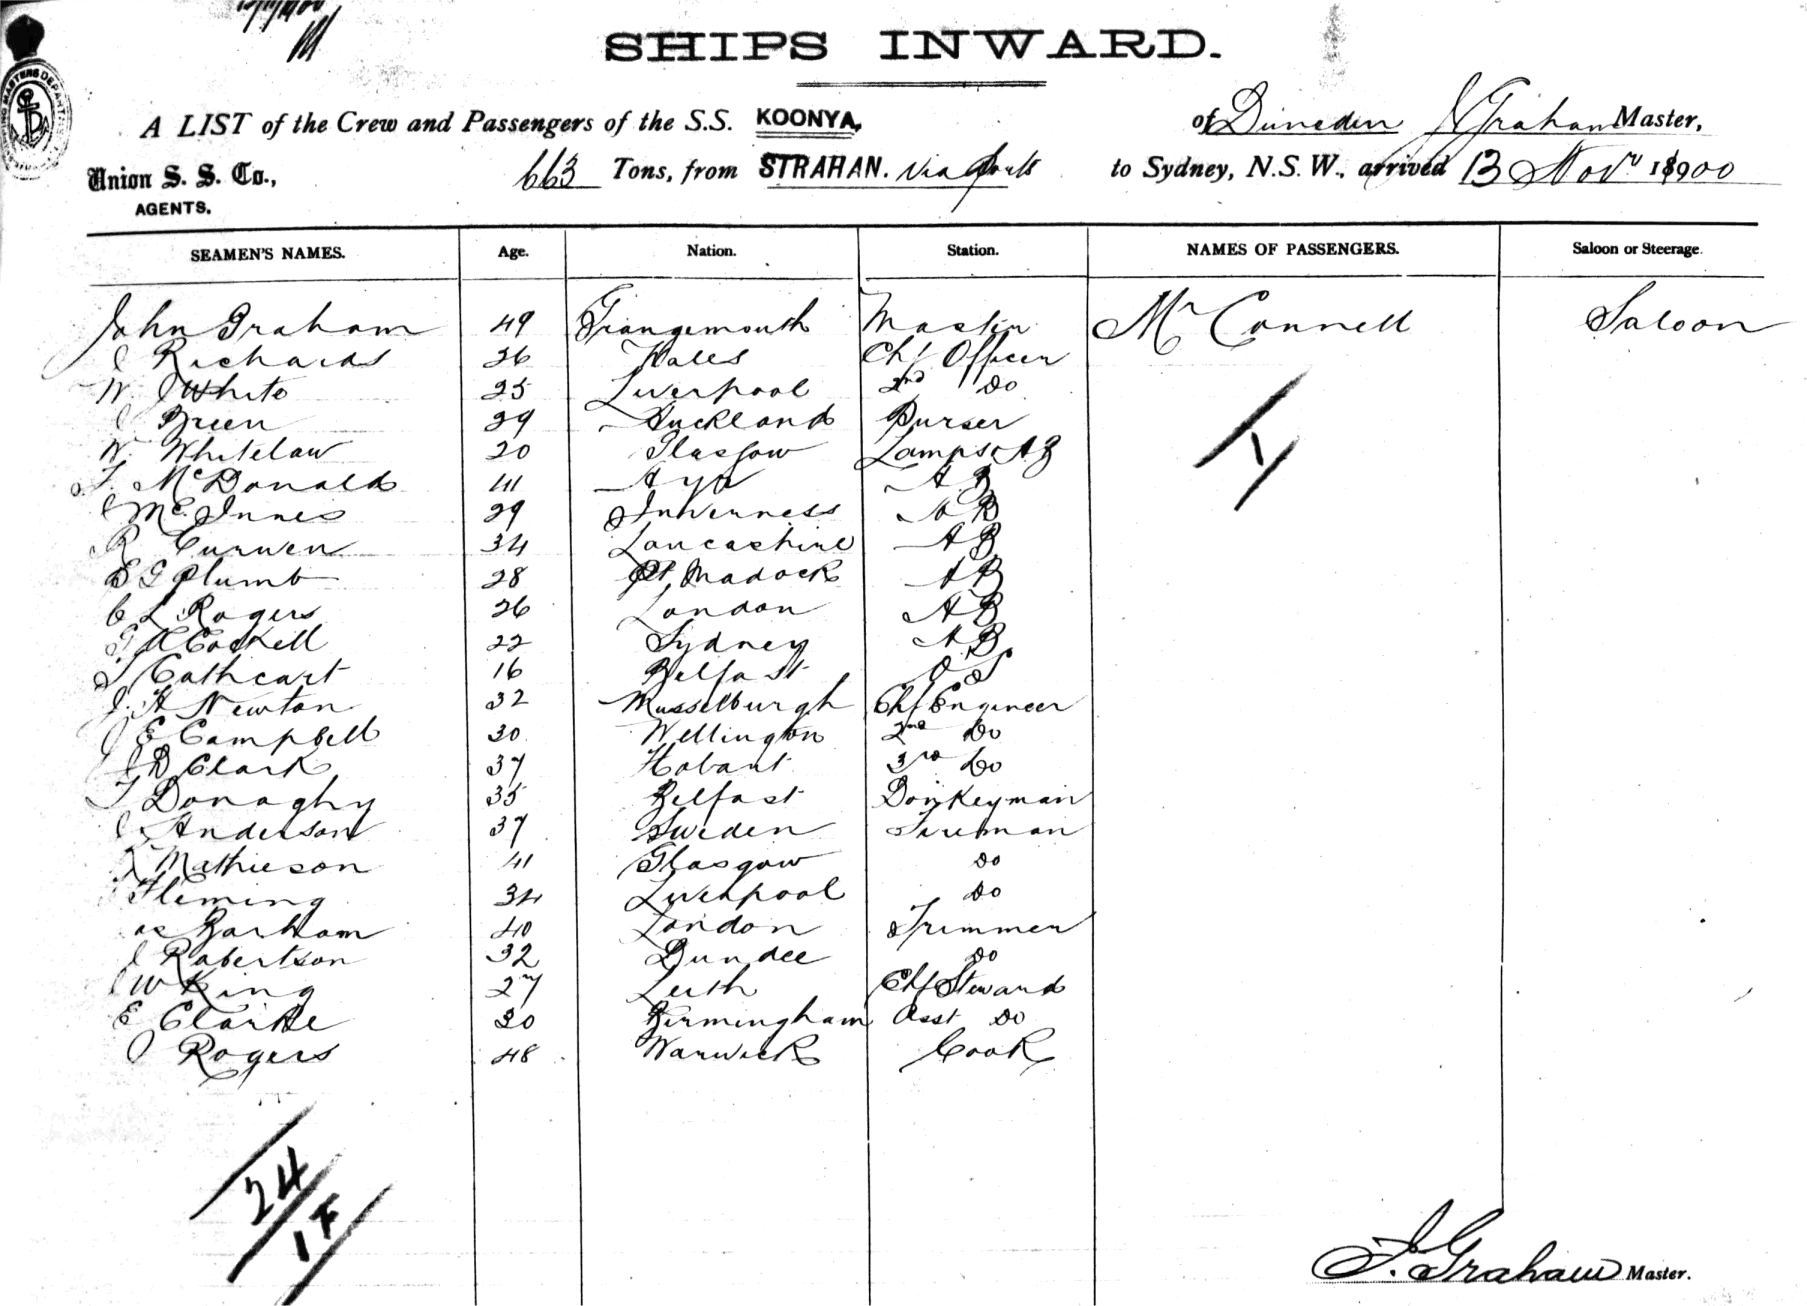 SHIPS INWARD.
A LIST of the Crew and Passengers of the S.S. KOONYA, of Dunedin J Graham Master,
Union S. S. Co., 663 Tons, from STRAHAN. via Ports to Sydney, N.S.W., arrived 13 Novr 1900
AGENTS.
SEAMEN'S NAMES. Age. Nation. Station. NAMES OF PASSENGERS. Saloon or Steerage.
John Graham 49 Grangemouth Master Mr Connell Saloon
J Richards 26 Wales Chf Officer
W. J White 25 Liverpool 2nd Do
J Green 29 Auckland Purser
W. Whitelaw 20 Glasgow Lamps AB
T. McDonald 41 Ayr A.B
J McInnes 29 Inverness AB
R Curwen 34 Lancashire AB
E G Plumb 28 Pt Madock AB
C L Rogers 26 London AB
G A Coskell 22 Sydney AB
S Cathcart 16 Belfast O.S
J. H Newton 32 Musselburgh Chf Engineer
J E Campbell 30 Wellington 2nd Do
J D Clark 37 Hobart 3rd Do
T Donaghy 35 Belfast Donkeyman
J Anderson 37 Sweden Fireman
Mathieson 41 Glasgow Do
Fleming 34 Liverpool Do
Barham 40 London Trimmer
J Robertson 32 Dundee Do
J W King 27 Leith Chf Steward
E Clarke 30 Birmingham Asst Do
J Rogers 48 Warwick Cook
1
24
1 F
J. Graham Master.